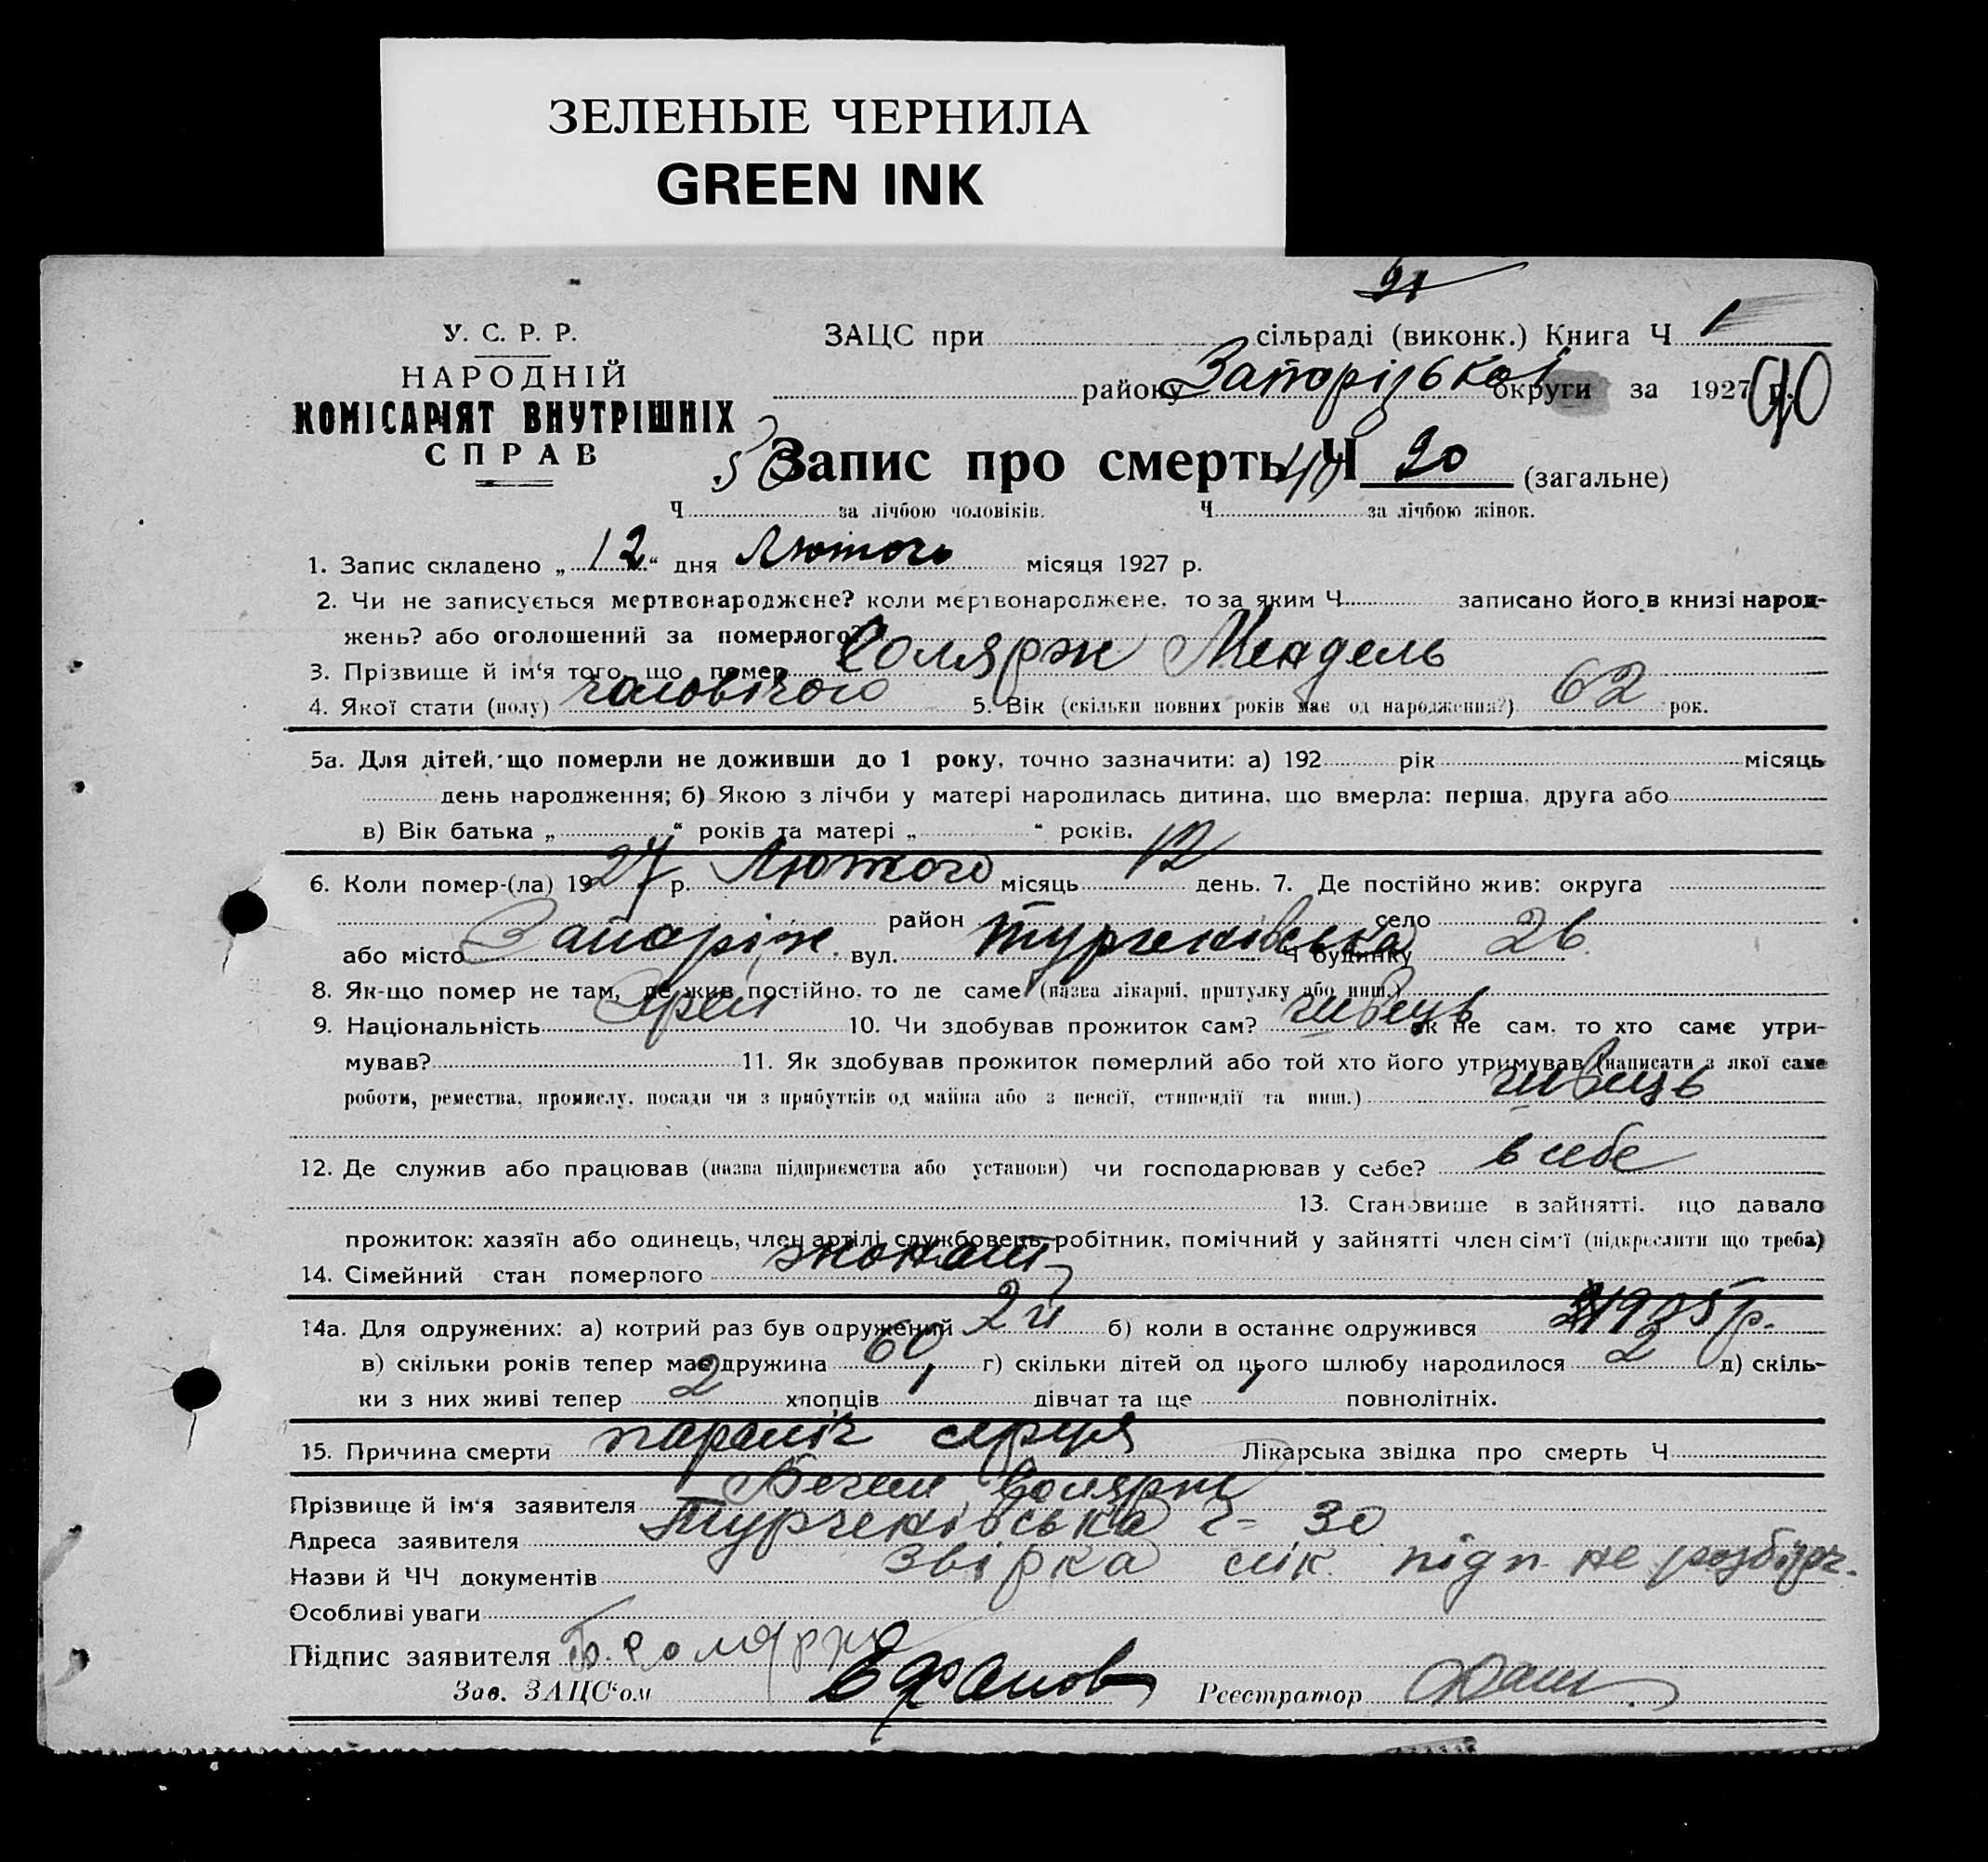 ЗЕЛЕНЫЕ ЧЕРНИЛА
GREEN INK
21
У. С. Р. Р.
НАРОДНІЙ
КОМІСАРІЯТ ВНУТРІШНІХ
СПРАВ
ЗАЦС при сільраді (виконк.) Книга Ч 1
району Запорізької округи за 1927 р.
Запис про смерть Ч 20 (загальне)
Ч за лічбою чоловіків. Ч за лічбою жінок.
1. Запис складено „12“ дня Лютого місяця 1927 р.
2. Чи не записується мертвонароджене? коли мертвонароджене, то за яким Ч записано його в книзі народ-
жень? або оголошений за померлого?
3. Прізвище й ім‘я того, що помер Солярж Мендель
4. Якої стати (полу) чоловічого 5. Вік (скільки повних років має од народження?) 62 рок.
5а. Для дітей, що померли не доживши до 1 року, точно зазначити: а) 192 рік місяць
день народження; б) Якою з лічби у матері народилась дитина, що вмерла: перша, друга або
в) Вік батька „ “ років та матері „ “ років.
6. Коли помер-(ла) 1927 р. Лютого місяць 12 день. 7. Де постійно жив: округа
район село
або місто Запоріж. вул. Турченівська Ч будинку 26
8. Як-що помер не там, де жив постійно, то де саме (назва лікарні, притулку або инш.)
9. Національність Єрей 10. Чи здобував прожиток сам? швець як не сам, то хто саме утри-
мував? 11. Як здобував прожиток померлий або той хто його утримував (написати з якої саме
роботи, ремества, промислу, посади чи з прибутків од майна або з пенсії, стипендії та инш.) швець
12. Де служив або працював (назва підприємства або установи) чи господарював у себе? в себе
13. Становище в зайнятті, що давало
прожиток: хазяїн або одинець, член артілі, службовець, робітник, помічний у зайнятті член сім‘ї (підкреслити що треба)
14. Сімейний стан померлого жонат
14а. Для одружених: а) котрий раз був одружений 2й б) коли в останнє одружився 1905 р.
в) скільки років тепер має дружина 60 г) скільки дітей од цього шлюбу народилося 2 д) скіль-
ки з них живі тепер 2 хлопців 1 дівчат та ще 1 повнолітніх.
15. Причина смерти параліч серця Лікарська звідка про смерть Ч
Прізвище й ім‘я заявителя Солярж
Адреса заявителя Турченівська ч= 30
Назви й ЧЧ документів Звірка лік. підп не розбірч.
Особливі уваги
Підпис заявителя Б. Солярж
Зав. ЗАЦС‘ом Реєстратор